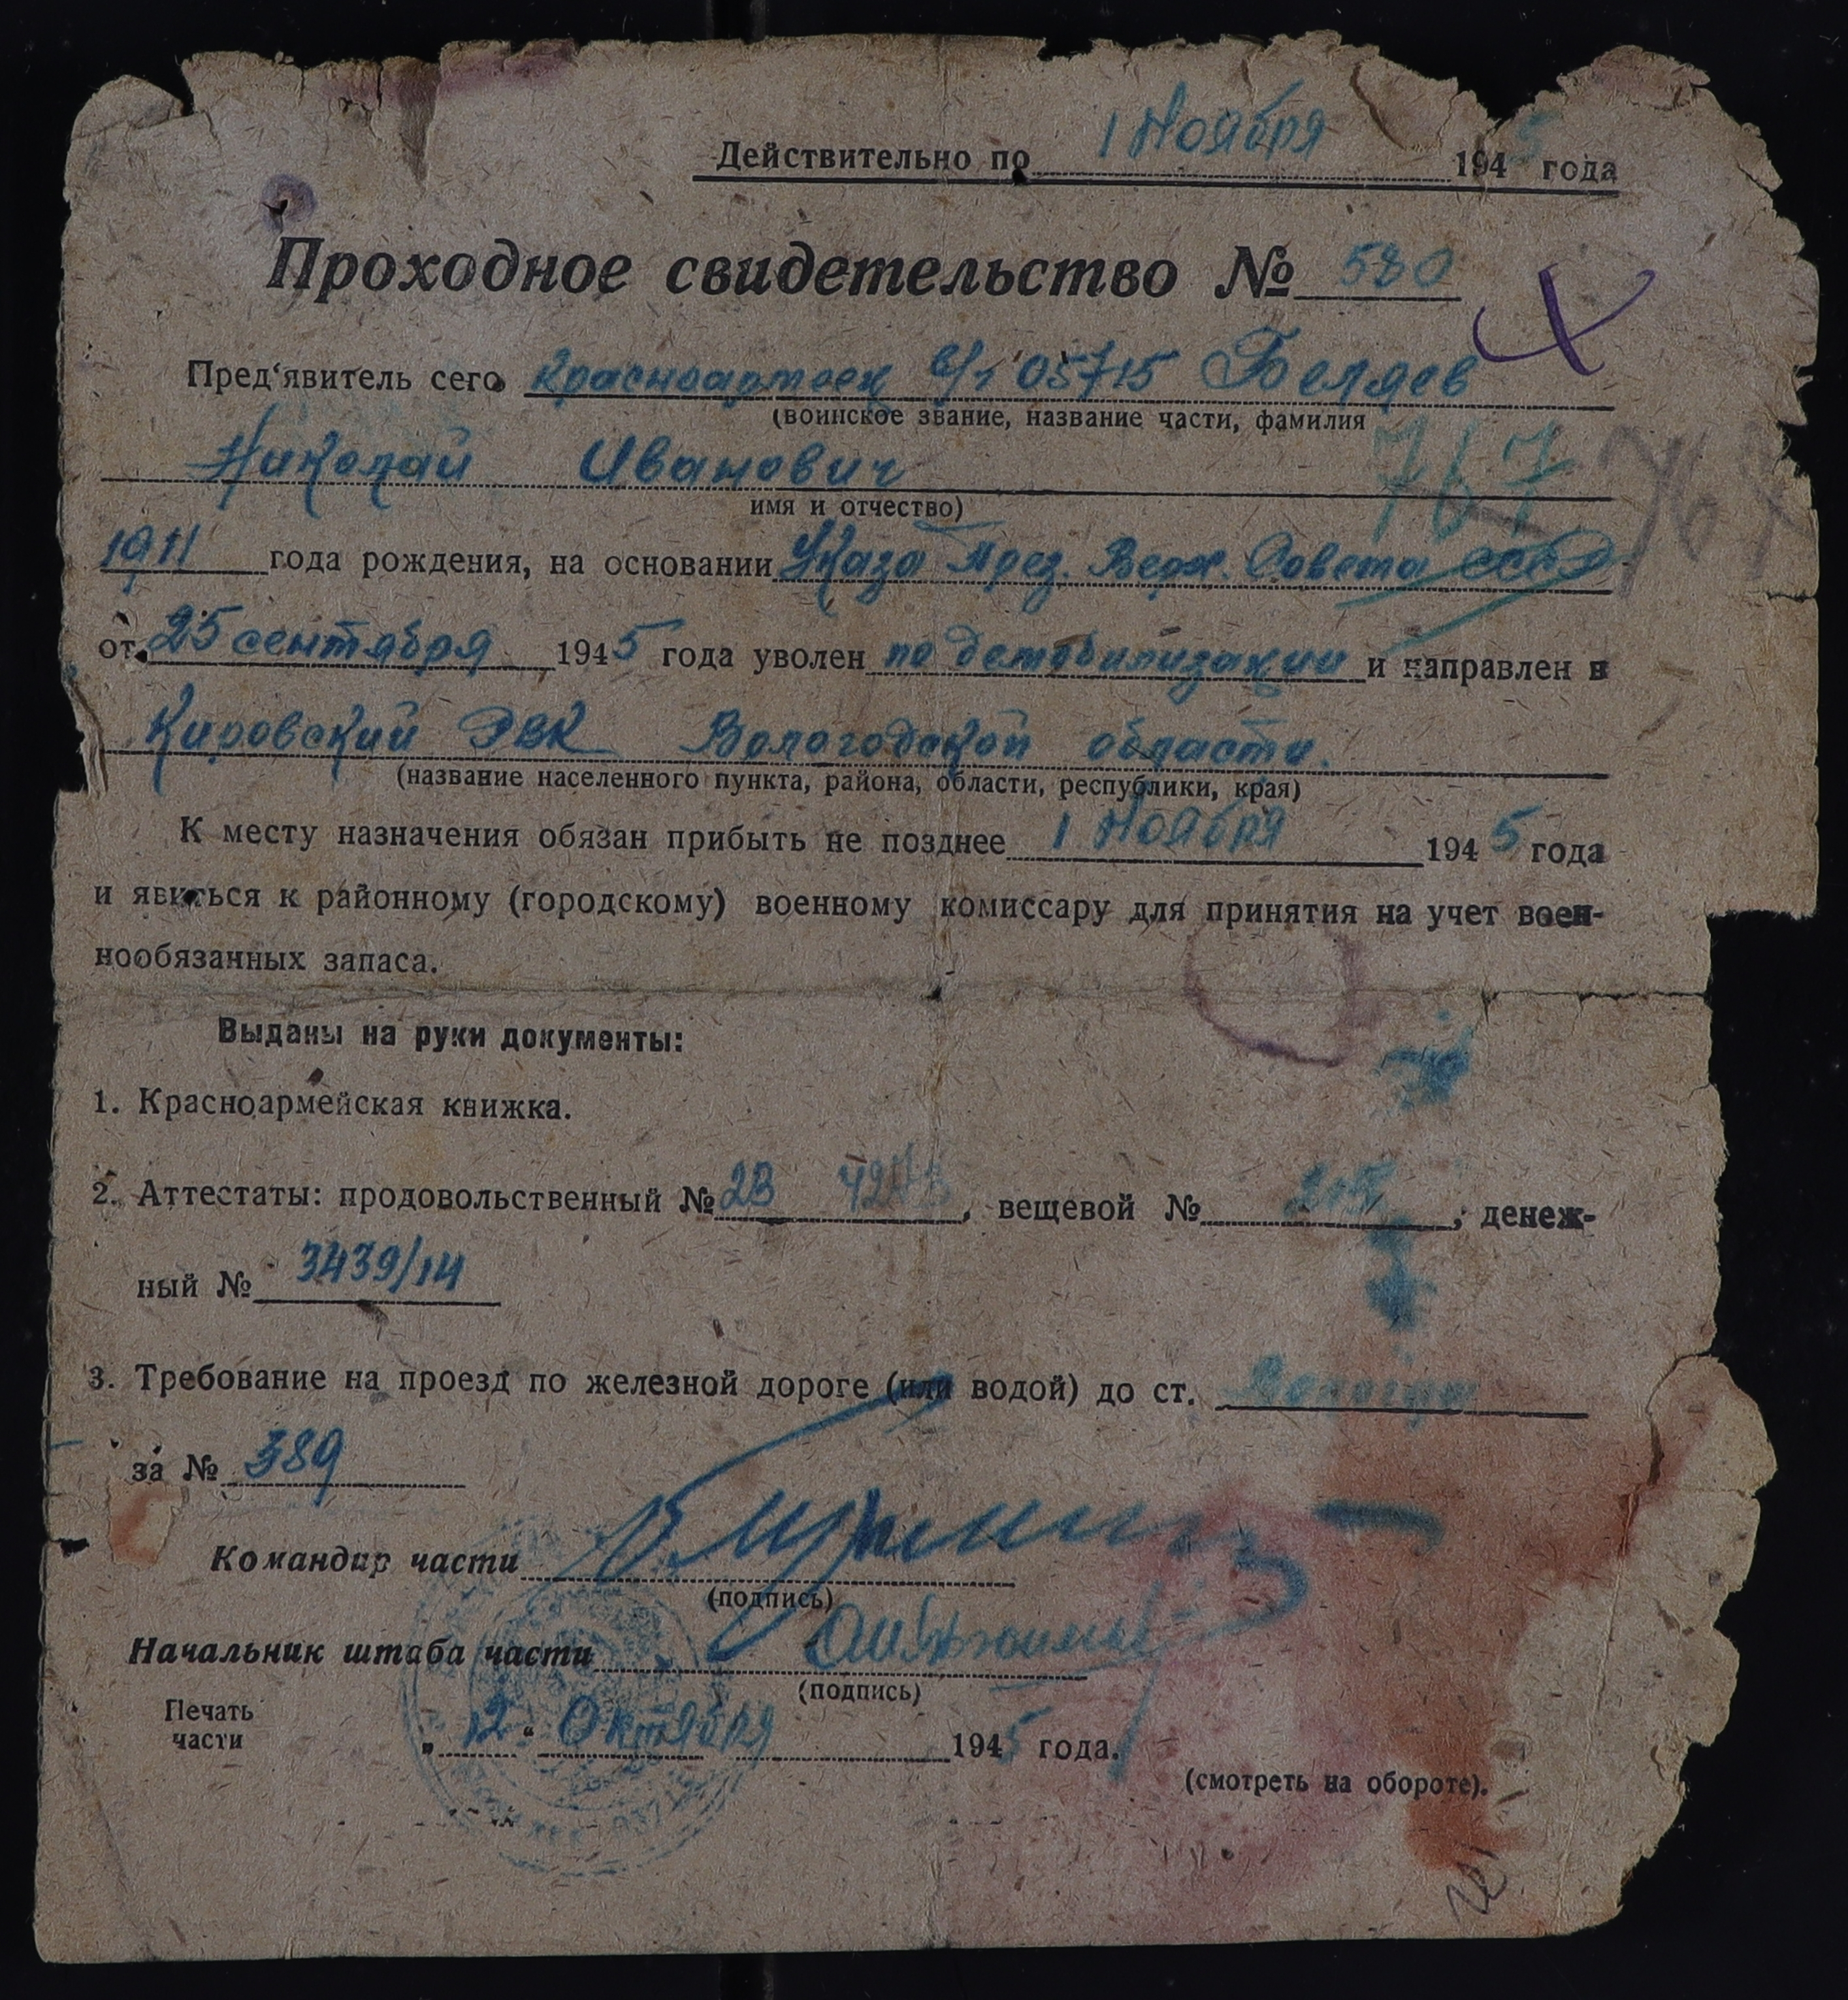 Действительно по 1 Ноября 1945 года
Проходное свидетельство № 580
Пред‘явитель сего красноармеец в/ч 05715 Беляев
(воинское звание, название части, фамилия
767 767
Николай Иванович
имя и отчество)
1911 года рождения, на основании Указа През. Верх. Совета СССР
от 25 сентября 1945 года уволен по демобилизации и направлен в
Кировский РВК Вологодской области.
(название населенного пункта, района, области, республики, края)
К месту назначения обязан прибыть не позднее 1 Ноября 1945 года
и явиться к районному (городскому) военному комиссару для принятия на учет воен-
нообязанных запаса.
Выданы на руки документы:
1. Красноармейская книжка.
2. Аттестаты: продовольственный № 23, вещевой №, денеж-
ный № 3439/14
3. Требование на проезд по железной дороге (или водой) до ст. Вологда
за № 389
Командир части
(подпись)
Начальник штаба части
(подпись)
Печать
части
„12“ Октября 1945 года.
(смотреть на обороте).